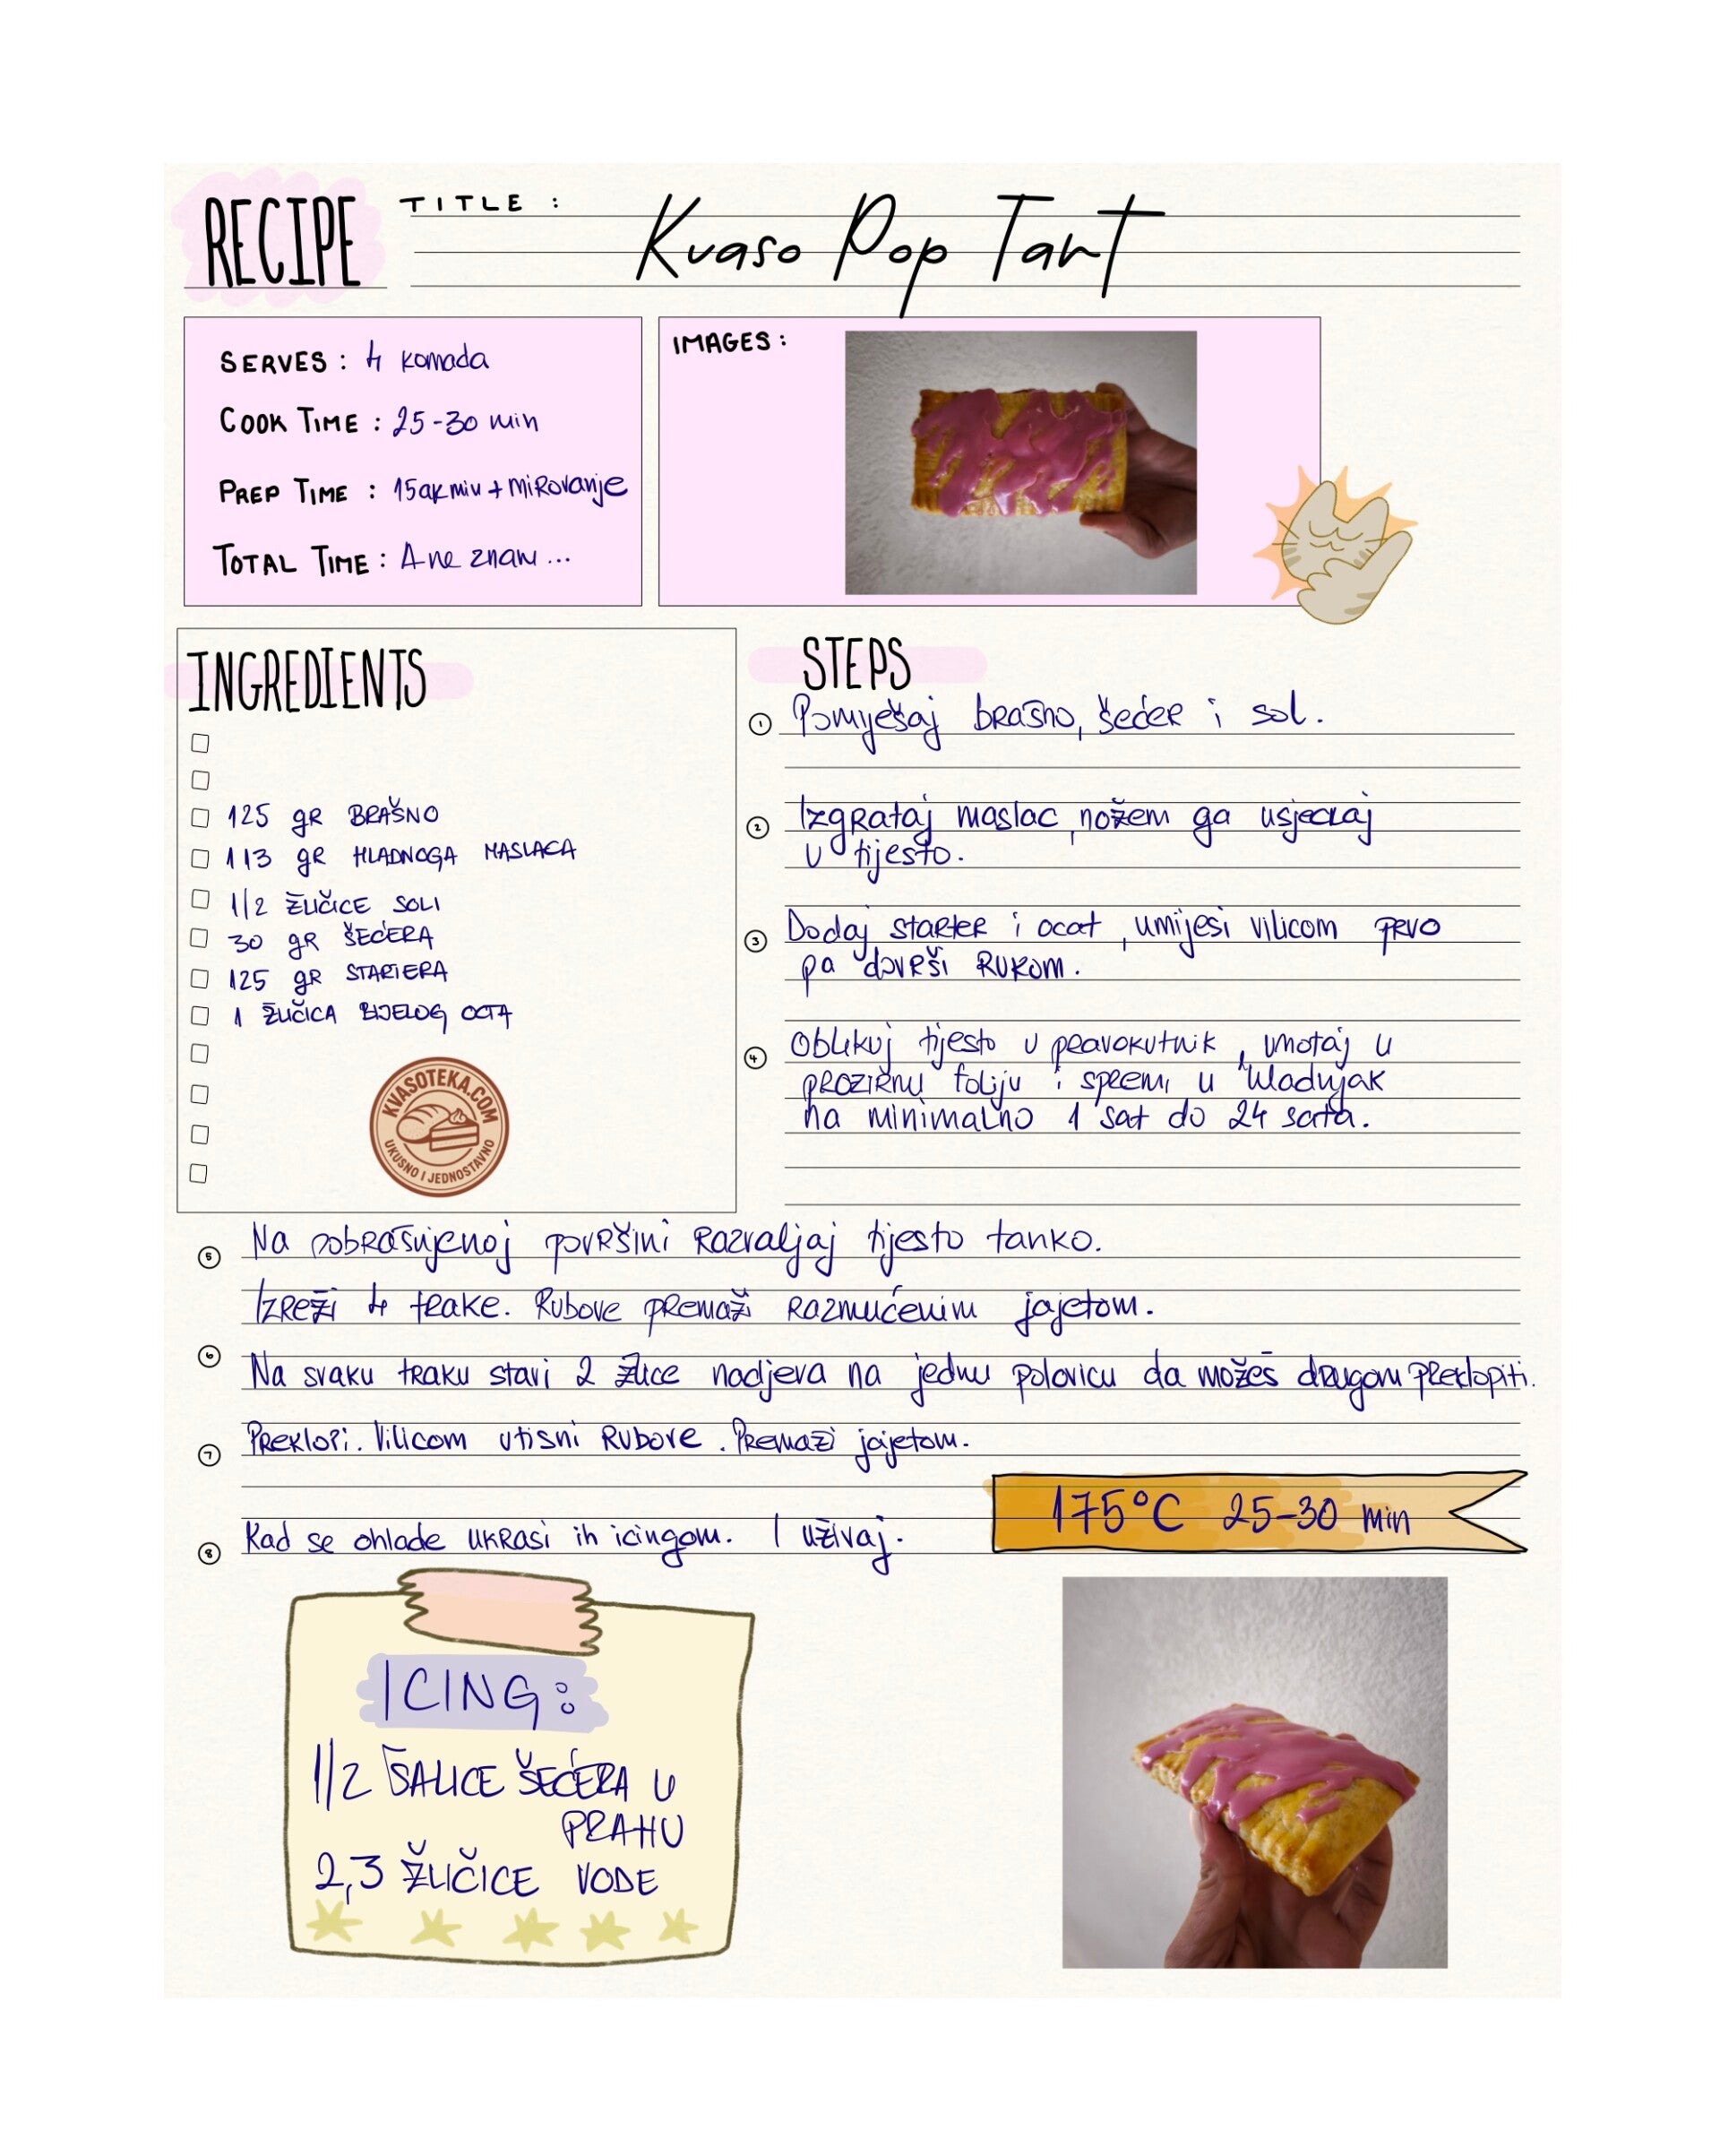 RECIPE
TITLE :
Kvaso Pop Tart
SERVES : 4 komada
COOK TIME : 25-30 min
PREP TIME : 15ak min + mirovanje
TOTAL TIME : A ne znam ...
IMAGES :
INGREDIENTS
125 gR BRAŠNO
113 gR HLADNOGA MASLACA
1/2 ŽLIČICE SOLI
30 gR ŠEĆERA
125 gR STARTERA
1 ŽLIČICA BIJELOG OCTA
KVASOTEKA.COM
UKUSNO I JEDNOSTAVNO
STEPS
1 Pomješaj brašno, šećer i sol.
2 Izgrataj maslac, nožem ga usjeckaj
u tijesto.
3 Dodaj starter i ocat, umijesi vilicom prvo
pa dovrši rukom.
4 Oblikuj tijesto u pravokutnik, umotaj u
prozirnu foliju i spremi u hladnjak
na minimalno 1 sat do 24 sata.
5 Na pobrašnjenoj površini razvaljaj tijesto tanko.
Izreži 4 trake. Rubove premaži razmućenim jajetom.
6 Na svaku traku stavi 2 žlice nadjeva na jednu polovicu da možeš drugom preklopiti.
7 Preklopi. Vilicom utisni rubove. Premazi jajetom.
175°C 25-30 min
8 Kad se ohlade ukrasi ih icingom. I uživaj.
ICING:
1/2 ŠALICE ŠEĆERA U
PRAHU
2,3 ŽLIČICE VODE